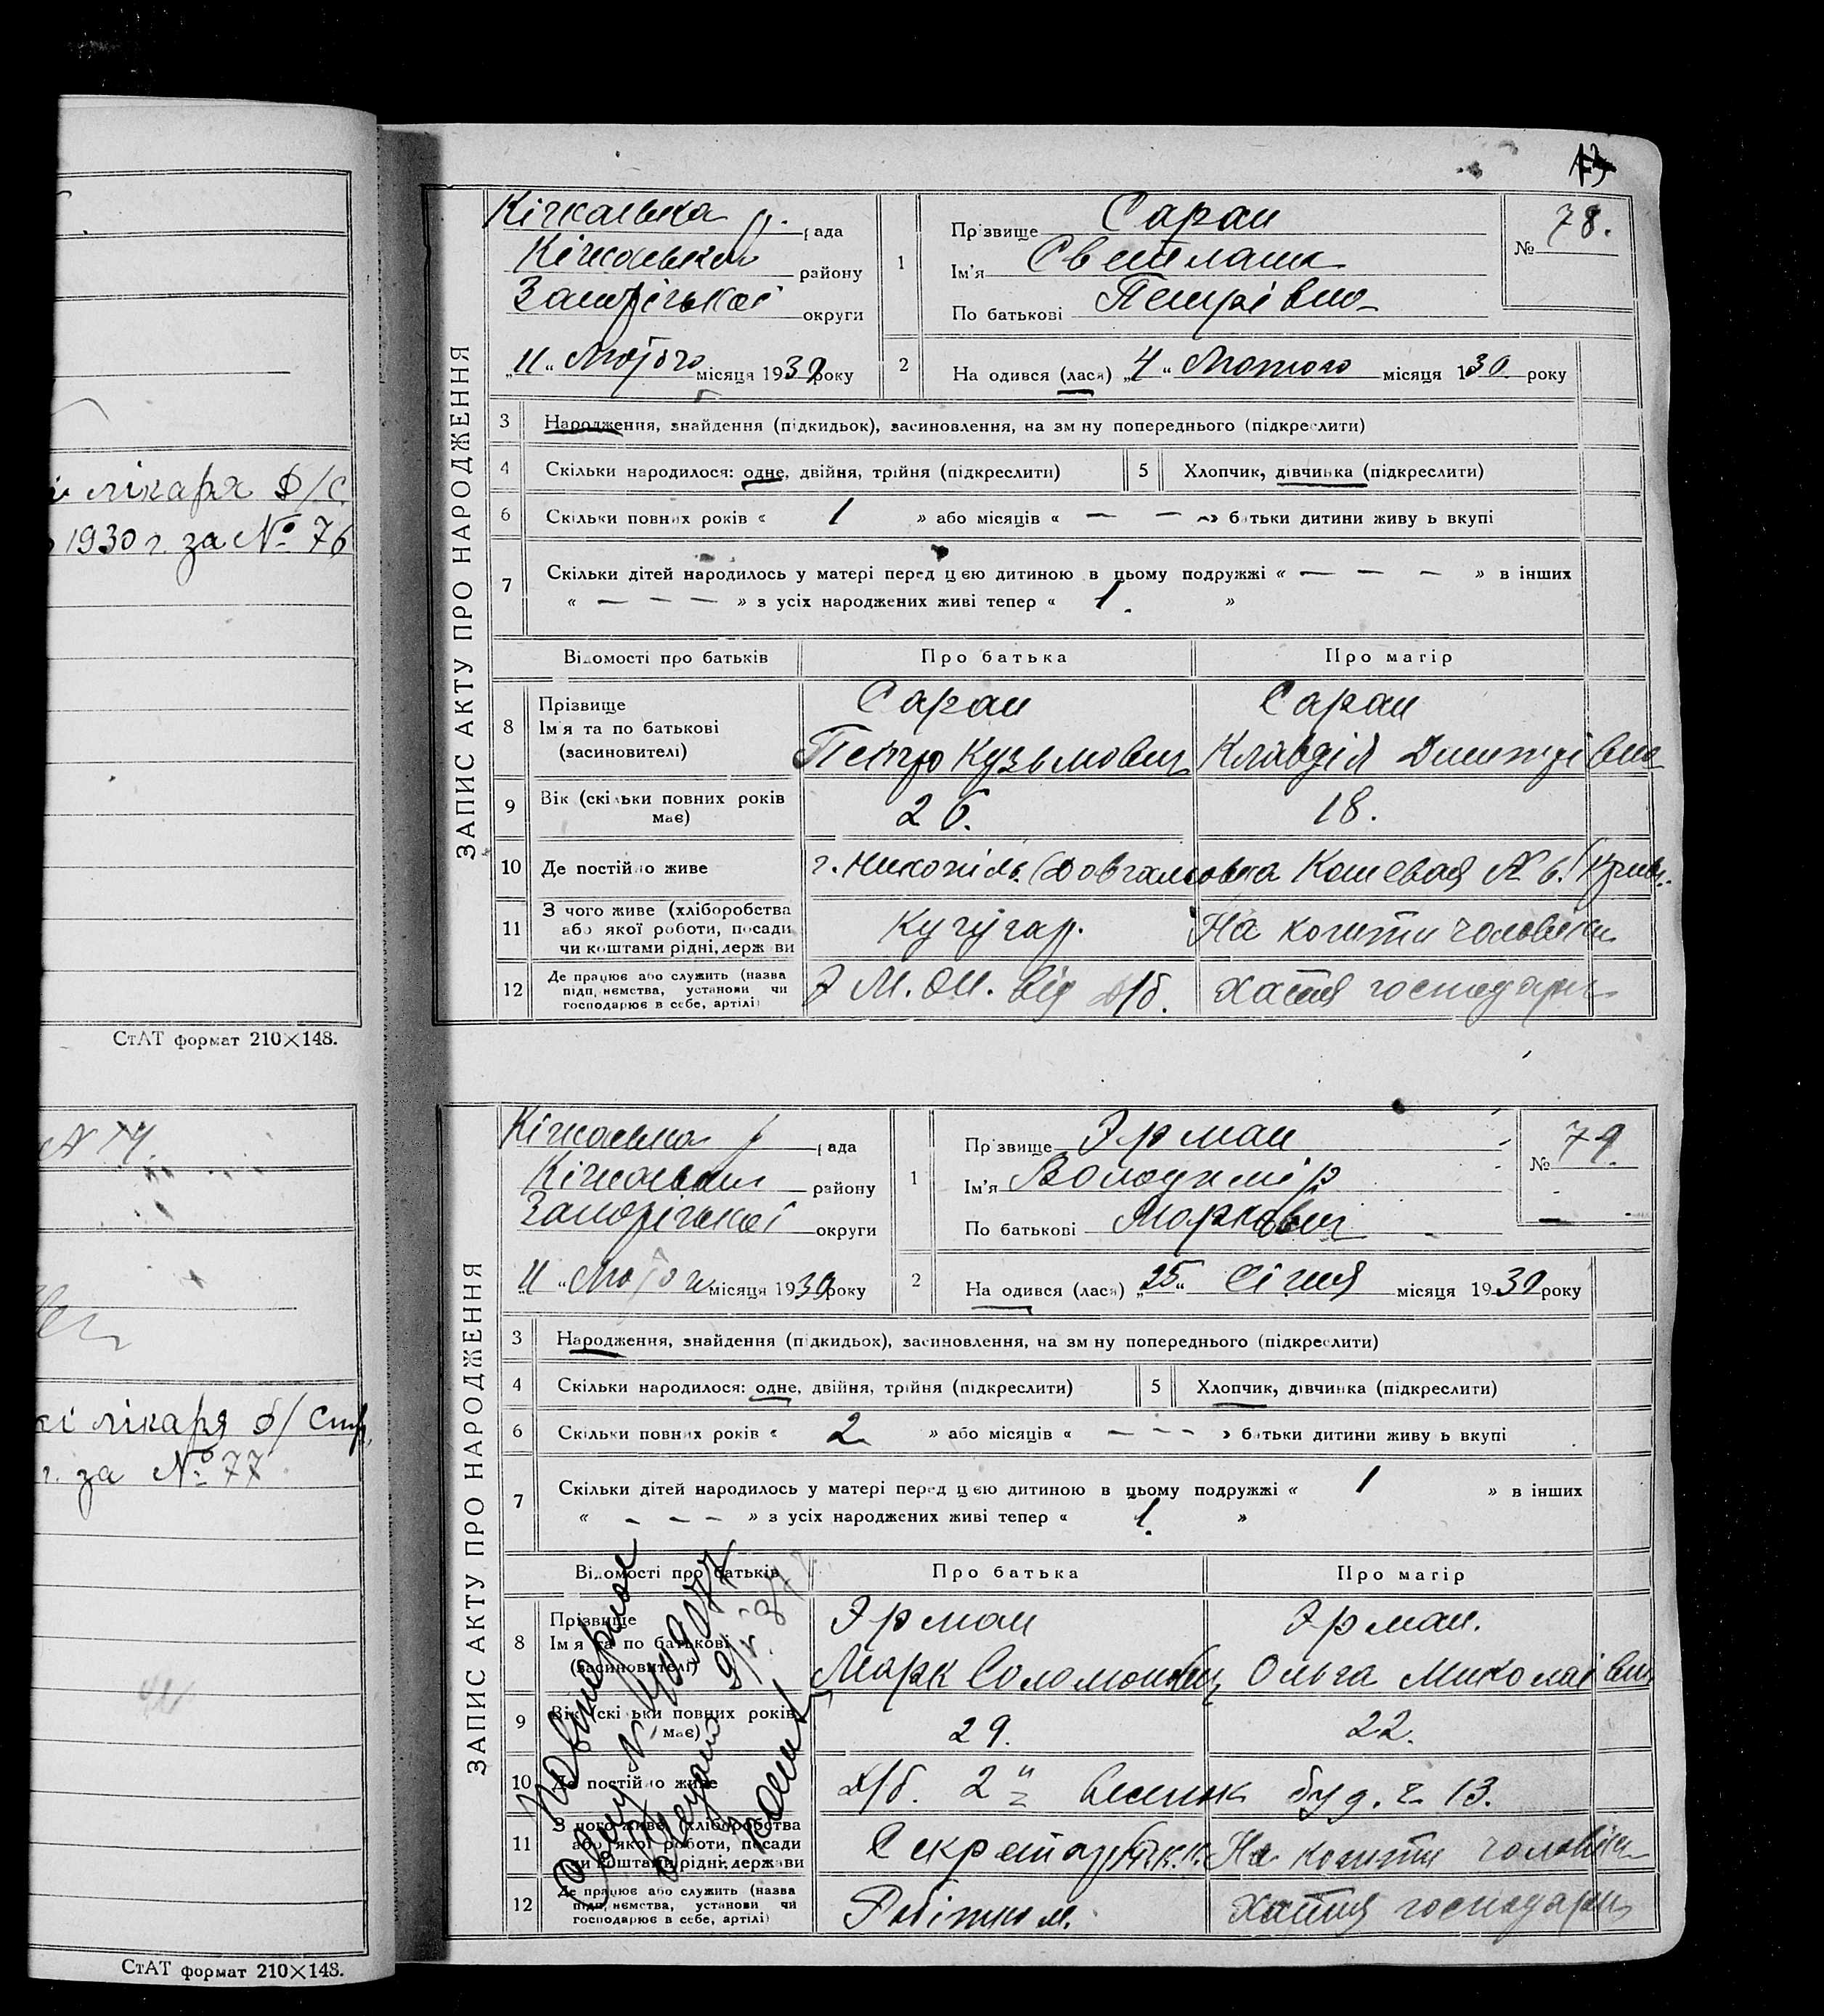 і лікаря Д/С.
1930 г. за № 76
СтАТ формат 210×148.
№ 74.
кі лікаря б/
г. за № 77
СтАТ формат 210×148.
ЗАПИС АКТУ ПРО НАРОДЖЕННЯ
Кічкаська р. рада
Кічкаськ району
Запорізької округи
„11“ Лютого місяця 1930 року
1
Прізвище Саран
Ім'я Светлана
По батькові Петрівна
№ 78.
2
Народився (лася) „4“ Лютого місяця 1930 року
3 Народження, знайдення (підкидьок), засиновлення, на зміну попереднього (підкреслити)
4 Скільки народилося: одне, двійня, трійня (підкреслити) 5 Хлопчик, дівчинка (підкреслити)
6 Скільки повних років « 1 » або місяців « — — » батьки дитини живуть вкупі
7 Скільки дітей народилось у матері перед цією дитиною в цьому подружжі « — — — » в інших
« — — — » з усіх народжених живі тепер « 1. »
Відомості про батьків Про батька Про матір
8 Прізвище
Ім'я та по батькові
(засиновителі)
Саран
Петро Кузьмович
Саран
Клавдія Дмитрівна
9 Вік (скільки повних років
має)
26. 18.
10 Де постійно живе
г. Никопіль
11 З чого живе (хліборобства
або якої роботи, посади
чи коштами рідні, держави
На кошти чоловіка
12 Де працює або служить (назва
підприємства, установи чи
господарює в себе, артілі)
від Д/б. Хатня господарка
ЗАПИС АКТУ ПРО НАРОДЖЕННЯ
Кічкаська р рада
Кічкаськ району
Запорізької округи
„11“ Лютого місяця 1930 року
1
Прізвище Эрман
Ім'я Володимір
По батькові Маркович
№ 79.
2
Народився (лася) „25“ Січня місяця 1930 року
3 Народження, знайдення (підкидьок), засиновлення, на зміну попереднього (підкреслити)
4 Скільки народилося: одне, двійня, трійня (підкреслити) 5 Хлопчик, дівчинка (підкреслити)
6 Скільки повних років « 2 » або місяців « — — — » батьки дитини живуть вкупі
7 Скільки дітей народилось у матері перед цією дитиною в цьому подружжі « 1 » в інших
« — — — » з усіх народжених живі тепер « 1. »
Відомості про батьків Про батька Про матір
8 Прізвище
Ім'я та по батькові
(засиновителі)
Эрман
Марк Соломонович
Эрман.
Ольга Миколаівна
9 Вік (скільки повних років
має)
29. 22.
10 Де постійно живе
Д/б. 2й буд. ч. 13.
11 З чого живе (хліборобства
або якої роботи, посади
чи коштами рідні, держави
Секретарь На кошти чоловіка
12 Де працює або служить (назва
підприємства, установи чи
господарює в себе, артілі)
Хатня господарка